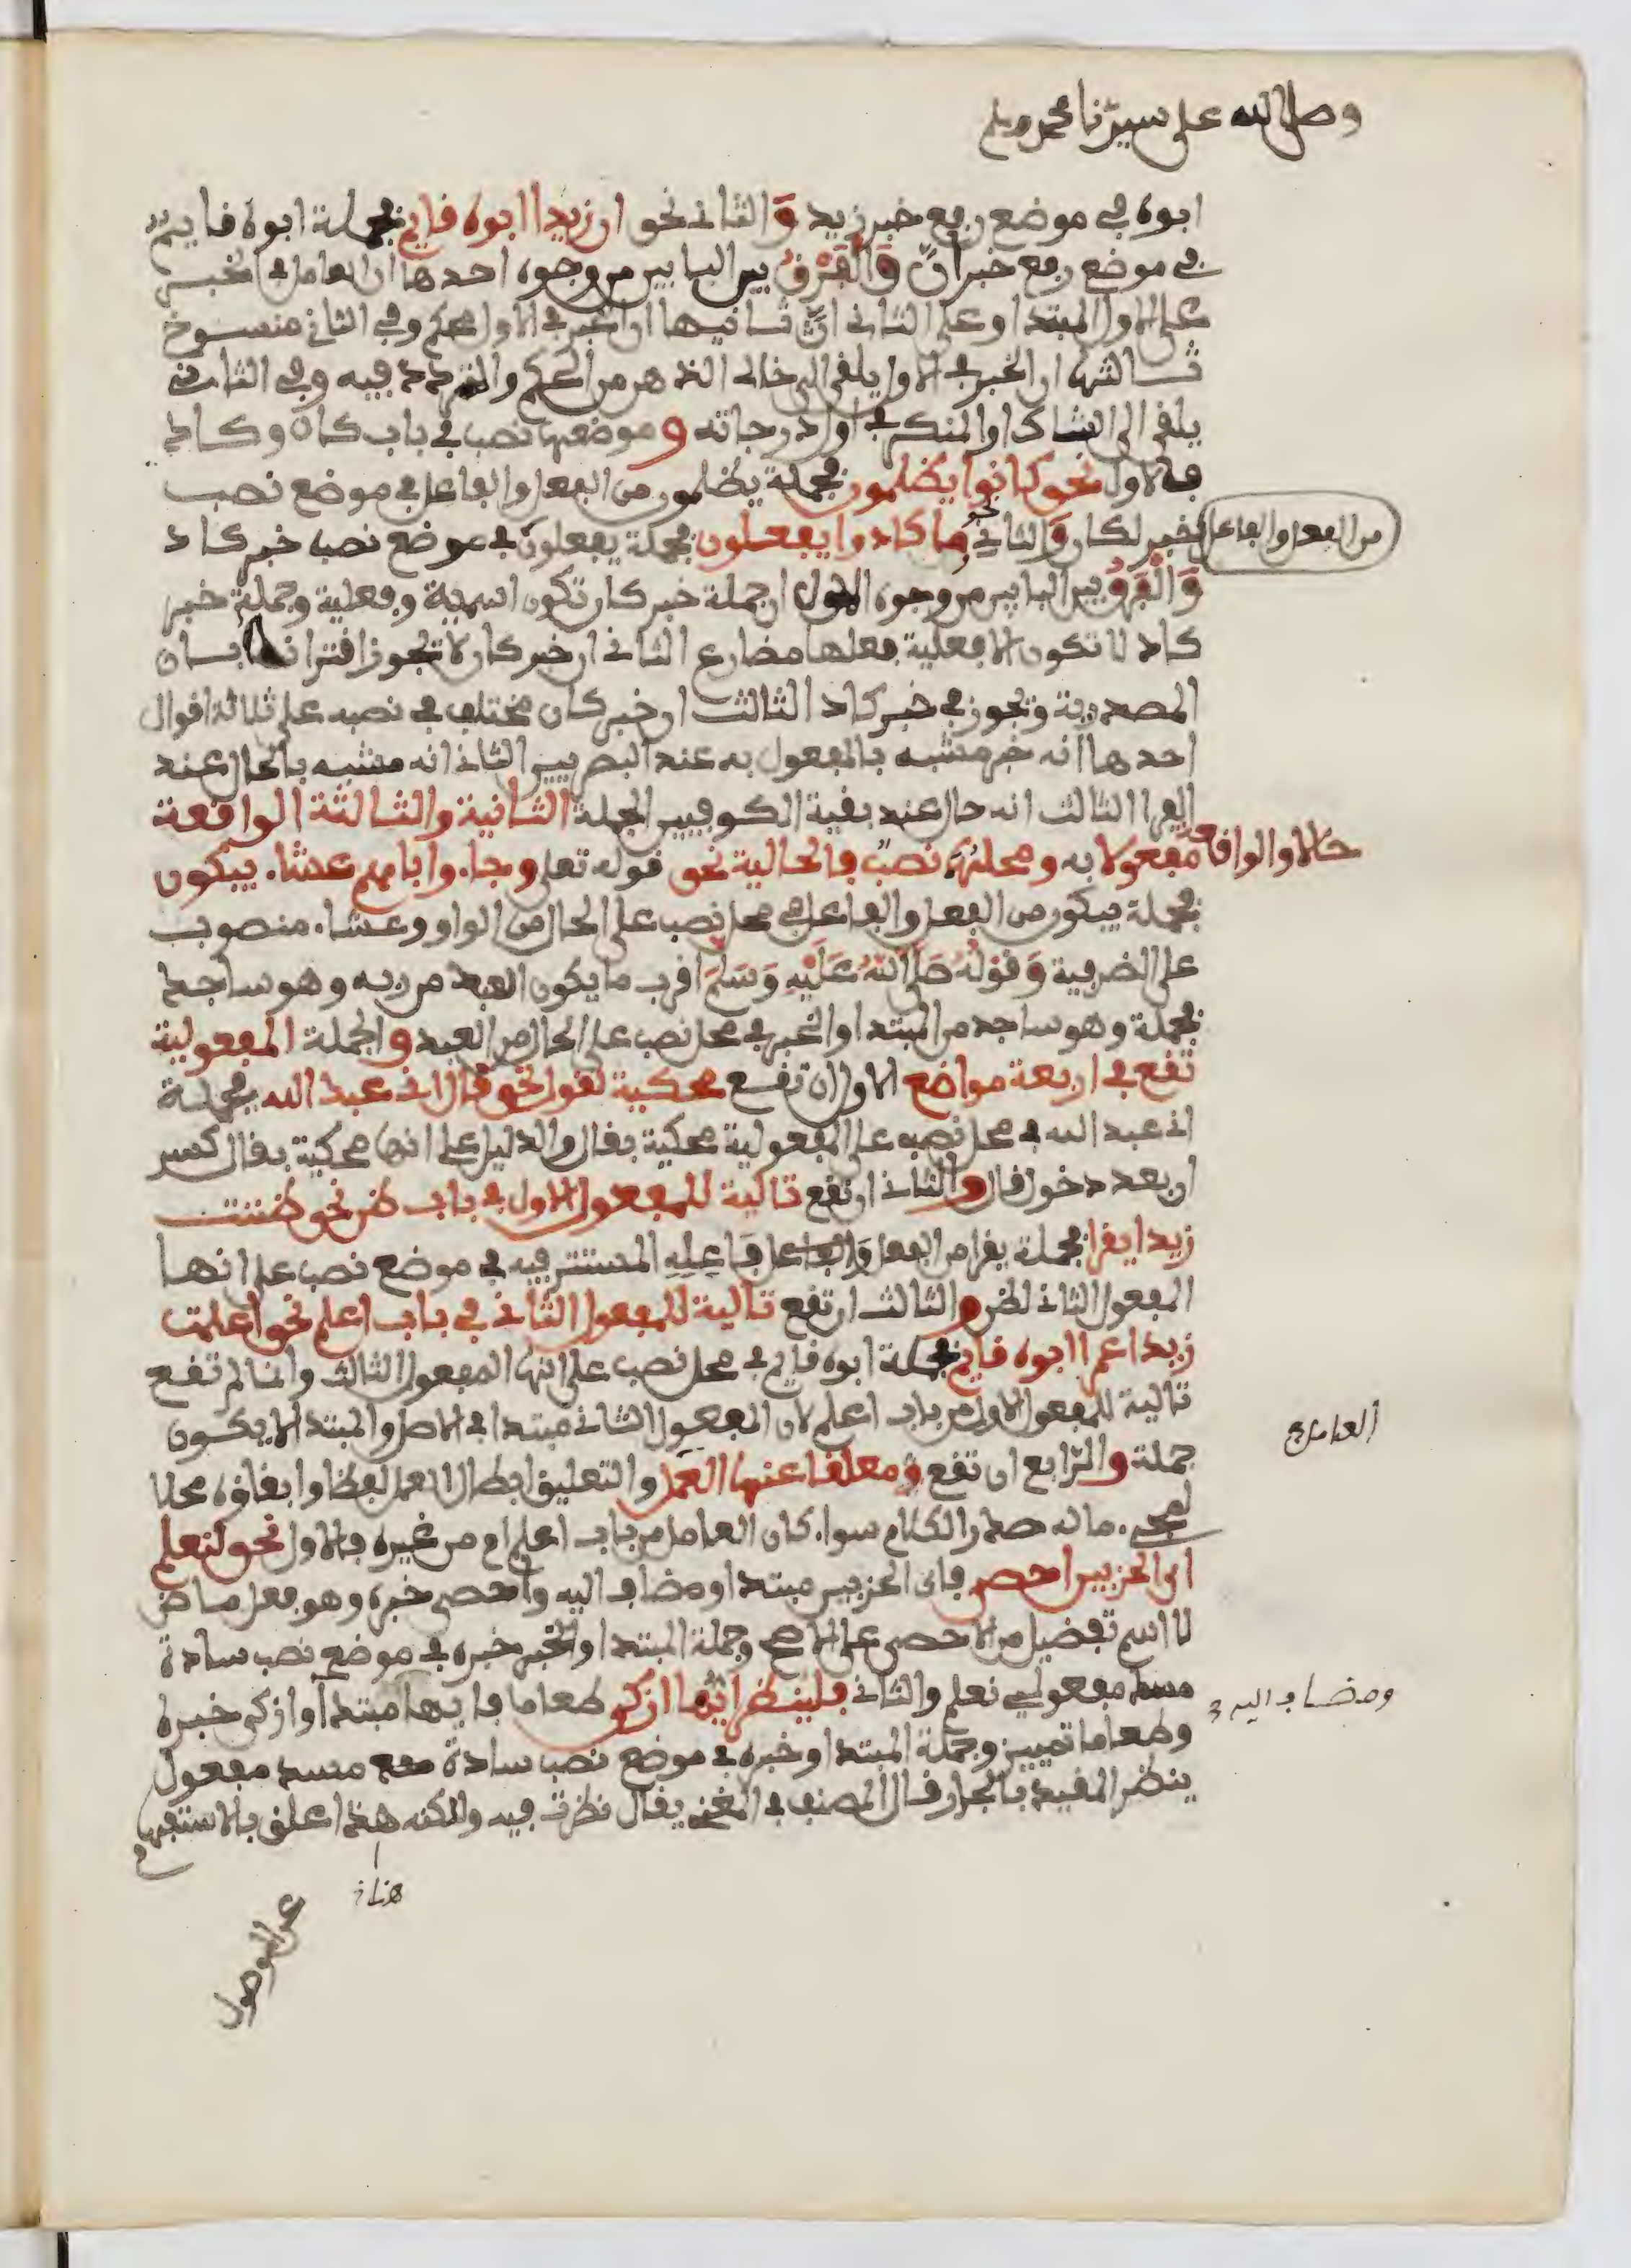 وصلى الله على سيدنا محمد وسلم
ابوه في موضع رفع خبر زيد وَالثاني نحو ان زيدا ابوه قايم فجملة ابوه قايم
في موضع رفع خبر انّ وَالْفَرْقُ بين البابين من وجوه احدها ان العامل في الخبر
على الاول المبتدا وعلى الثاني انّ ثانيها ان الخبر في الاول محكم وفي الثاني منسوخ
ثالثها ان الخبر في الاول يلقى الى خالي الذهن من الحكم والتردد فيه وفي الثاني
يلقى الى الشاك او المنكر في اول درجاته و موضعها نصب في باب كان وكاد
فالاول نحو كانوا يظلمون فجملة يظلمون من الفعل والفاعل في موضع نصب
خبر لكان وَالثاني نحو وما كادوا يفعلون فجملة يفعلون في موضع نصب خبر كاد
من الفعل والفاعل
وَالْفَرْقُ بين البابين من وجوه الاول ان جملة خبر كان تكون اسمية وفعلية وجملة خبر
كاد لا تكون الا فعلية فعلها مضارع الثاني ان خبر كان لا تجوز اقترانها بان
المصدرية وتجوز في خبر كاد الثالث ان خبر كان مختلف في نصبه على ثلاثة اقوال
احدها انه خبر مشبه بالمفعول به عند البصريين الثاني انه مشبه بالحال عند
الفرا الثالث انه حال عند بقية الكوفيين الجملة الثانية والثالثة الواقعة
حالا والواقعة مفعولا به ومحلهما نصبٌ فالحالية نحو قوله تعلى وجاءوا اباهم عشاء يبكون
فجملة يبكون من الفعل والفاعل في محل نصب على الحال من الواو وعشاء منصوب
على الضرفية وَقَوْلُهُ صَلَى اللهُ عَلَيْهِ وَسَلَمَ اقرب ما يكون العبد من ربه وهو ساجد
فجملة وهو ساجد من المبتدا والخبر في محل نصب على الحال من العبد و الجملة المفعولية
تقع في اربعة مواضع الاول ان تقع محكية لقول نحو قال اني عبد الله فجملة
اني عبد الله في محل نصب على المفعولية محكية بقال والدليل على انها محكية بقال كسر
ان بعد دخول قال والثاني ان تقع تالية للمفعول الاول في باب ظن نحو ظننت
زيدا يقرا فجملة يقرا من الفعل وَفَاعِلِهِ المستتر فيه في موضع نصب على انها
المفعول الثاني لظن و الثالث ان تقع تالية للمفعول الثاني في باب اعلم نحو اعلمت
زيدا عمرا ابوه قايم فجملة ابوه قايم في محل نصب على انها المفعول الثالث وانما لم تقع
تالية للمفعول الاول من باب اعلم لان المفعول الثاني مبتدا في الاصل والمبتدا لا يكون
جملة والرّابع ان تقع معلقا عنها العمل والتعليق ابطال العمل لفظا وابقاؤه محلا
العامل
لمجيء ما له صدر الكلام سواء كان العامل من باب اعلم ام من غيره فالاول نحو لنعلم
اي الحزبين احصى فاى الحزبين مبتدا ومضاف اليه واحصى خبره وهو فعل ماض
لا اسم تفضيل من الاحصى على الاصح وجملة المبتدا والخبر خبره في موضع نصب سادة
مسد مفعولي نعلم والثاني فلينظر ايّها ازكى طعاما فايها مبتدا وازكى خبره
ومضاف اليه
وطعاما تمييز وجملة المبتدا وخبره في موضع نصب سادة مسد مفعول
ينظر المقيد بالجار قال المصنف في المغني يقال نظرت فيه ولكنه هنا علق بالاستفهام
هنا
عن الوصول